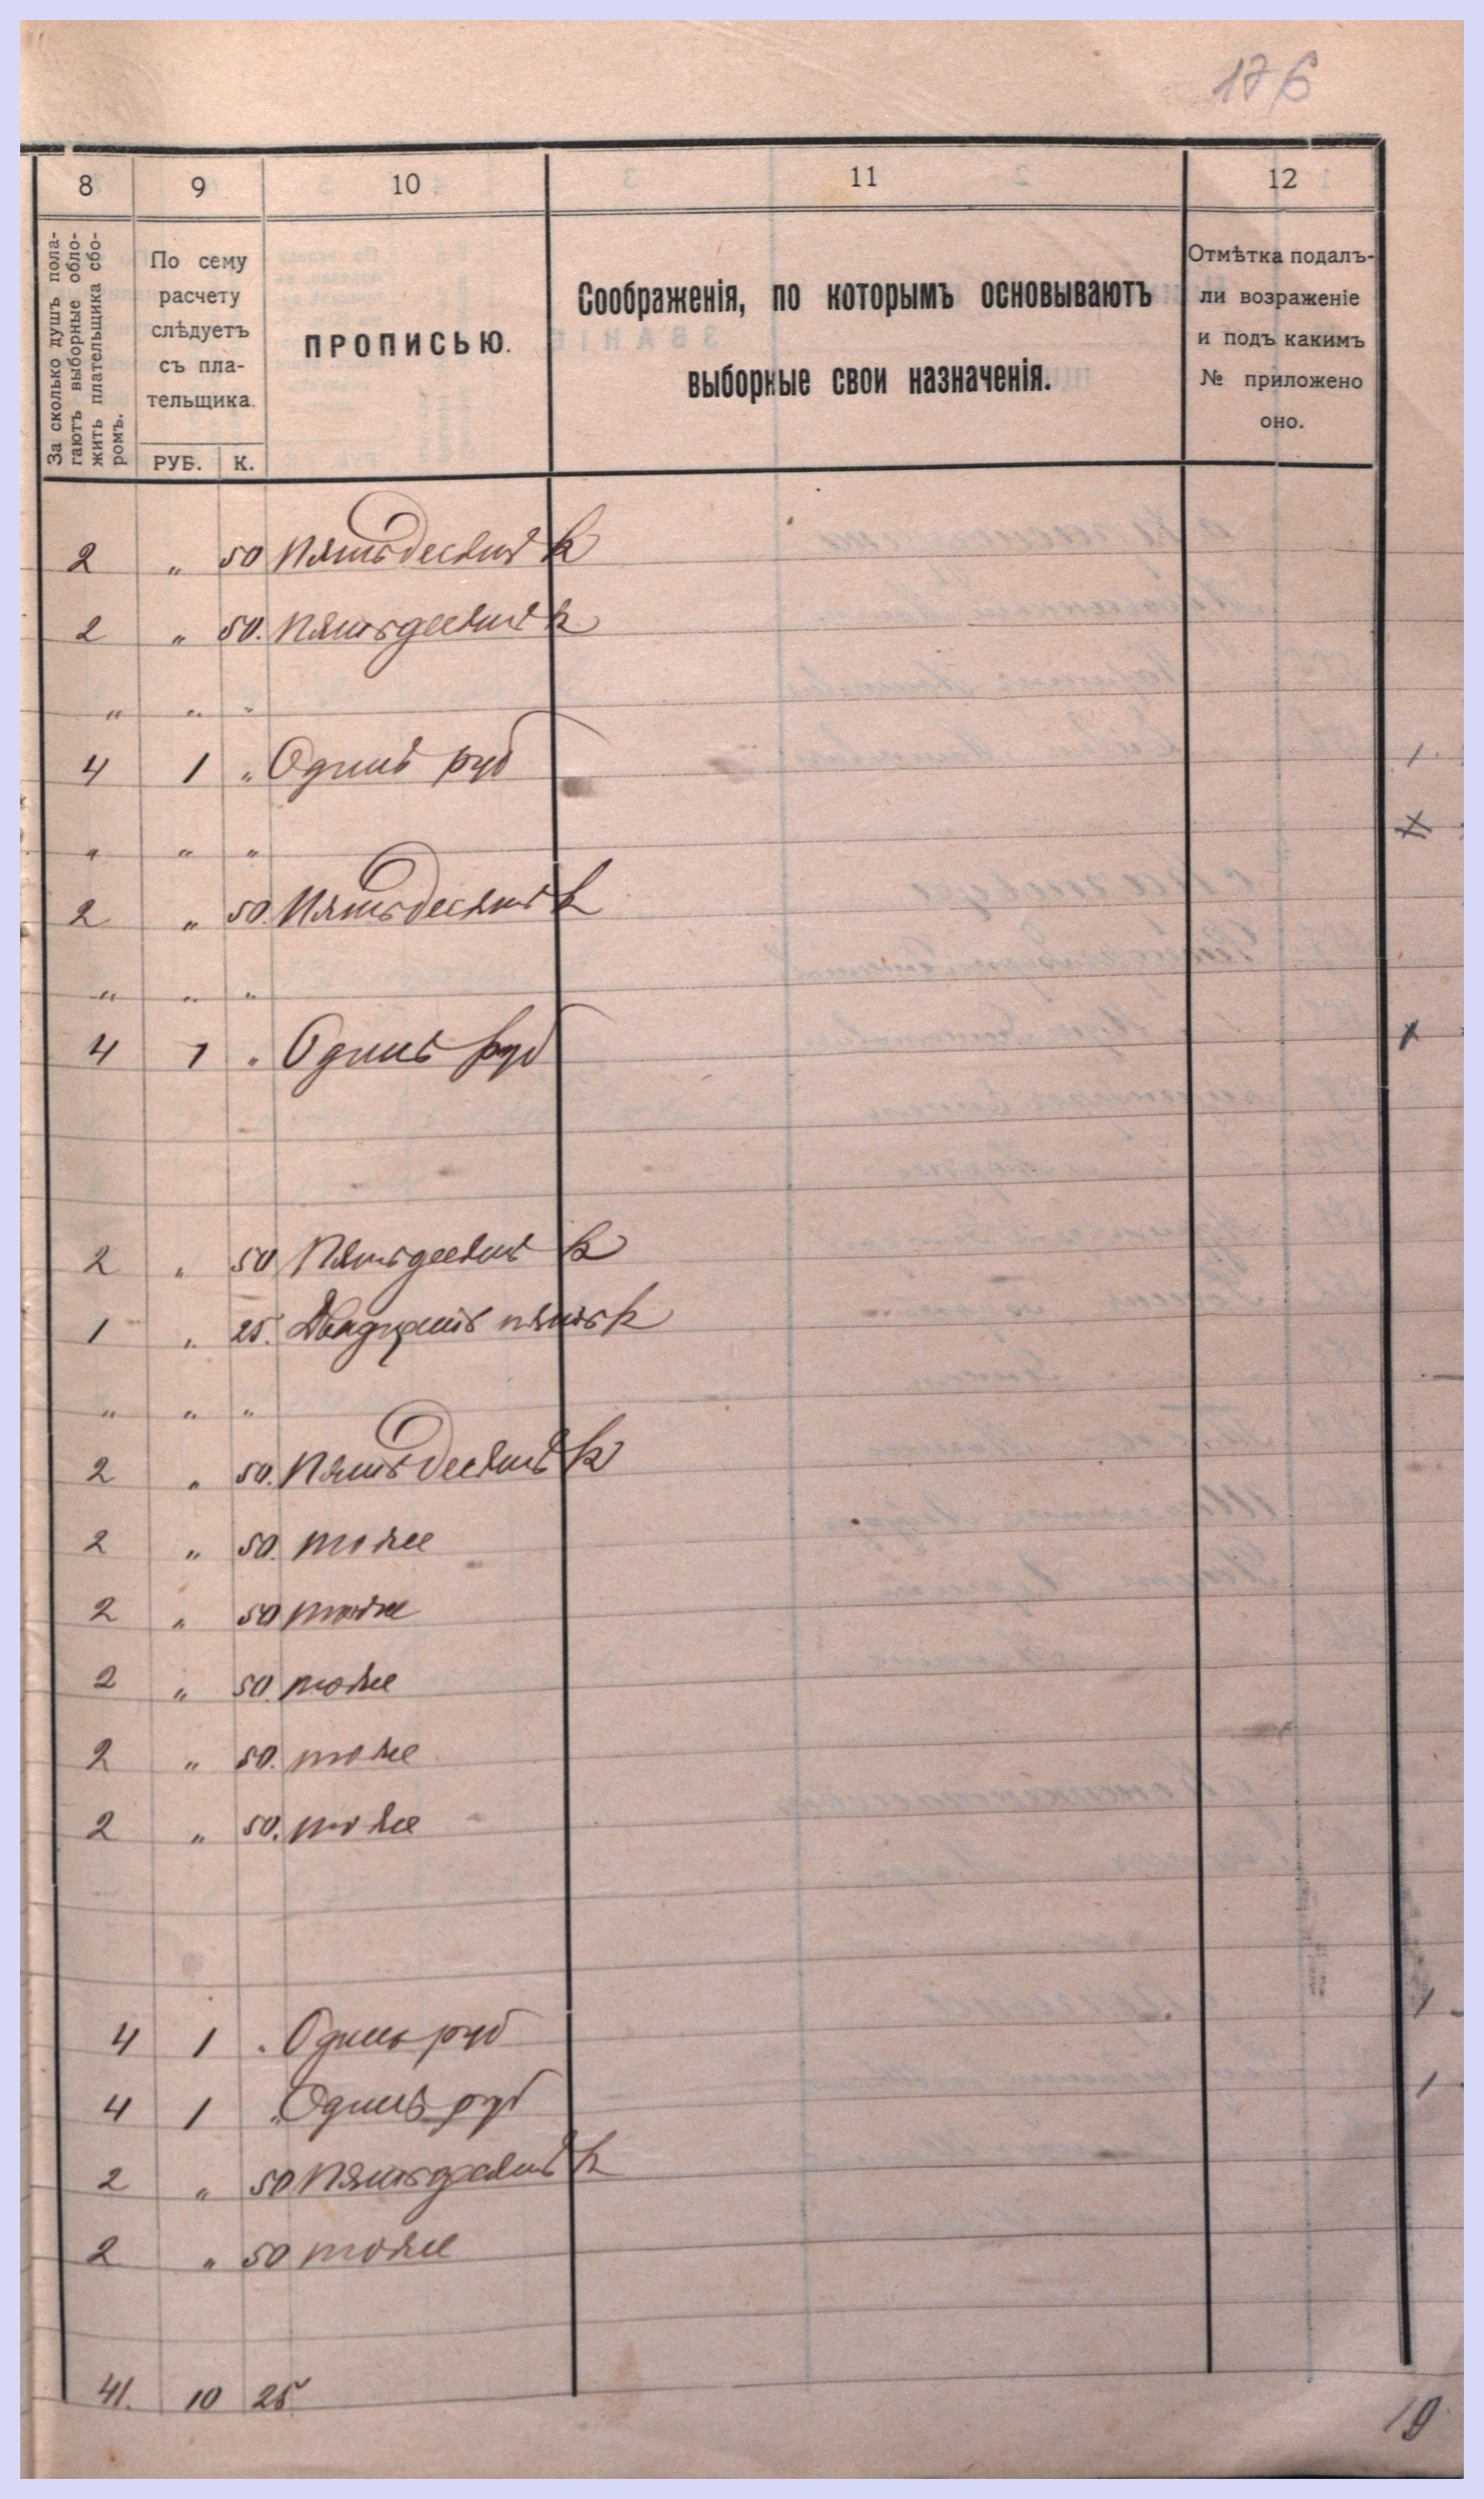 176
8 9 10 11 12
За сколько душъ пола-
гаютъ выборные обло-
жить плательщика сбо-
ромъ.
По сему
расчету
слѣдуетъ
съ пла-
тельщика.
РУБ. К.
ПРОПИСЬЮ.
Соображенія, по которымъ основываютъ
выборные свои назначенія.
Отмѣтка подалъ-
ли возраженіе
и подъ какимъ
№ приложено
оно.
2 " 50 Пятьдесятъ к
2 " 50. Пятьдесятъ к
" " "
4 1 " Одинъ руб
" " "
2 " 50. Пятьдесятъ к
" " "
4 1 " Одинъ руб
2 " 50 Пятьдесятъ к
1 " 25. Двадцать пять к
" " "
2 " 50. Пятьдесятъ к
2 " 50. тоже
2 " 50 тоже
2 " 50. тоже
2 " 50. тоже
2 " 50. тоже
4 1 " Одинъ руб
4 1 " Одинъ руб
2 " 50 Пятьдесятъ к
2 " 50 тоже
41. 10 25
19